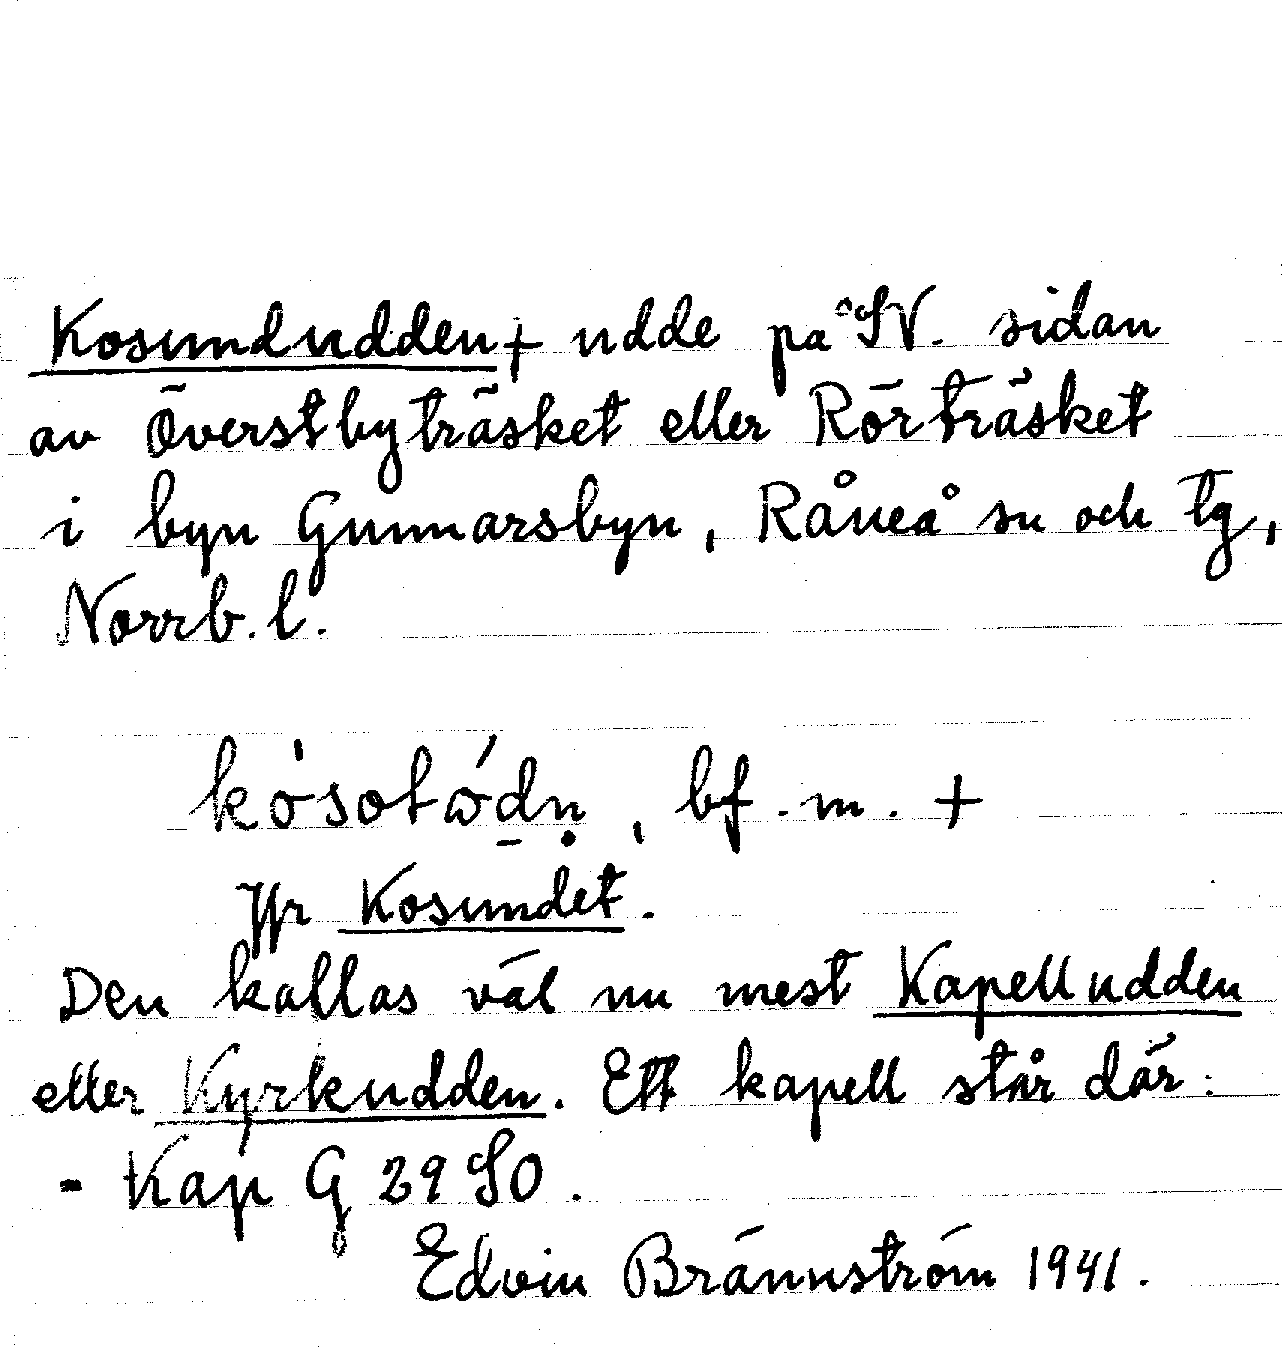 Kosundudden + udde på SV. sidan
av Överstbyträsket eller Rörträsket
i byn Gunnarsbyn, Råneå sn och tg,
Norrb. l.
kósotω̇́dn̥, bf. m. +
Jfr Kosundet.
Den kallas väl nu mest Kapelludden
eller Kyrkudden. Ett kapell står där.
- Kap G 29 SO.
Edvin Brännström 1941.